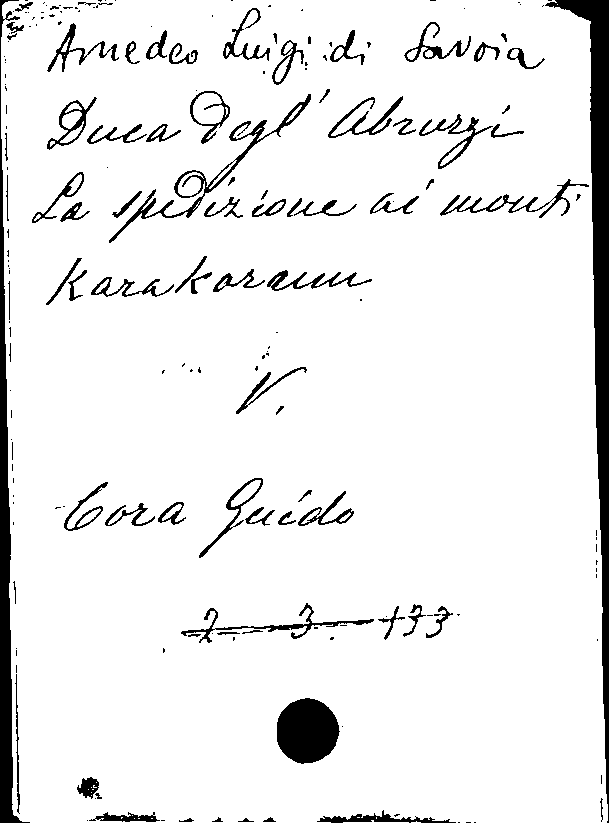 Amedeo Luigi di Savoia
Duca degl' Abruzzi
La spedizione ai monti
Karakoram
V.
Cora Guido
2. 3. 133